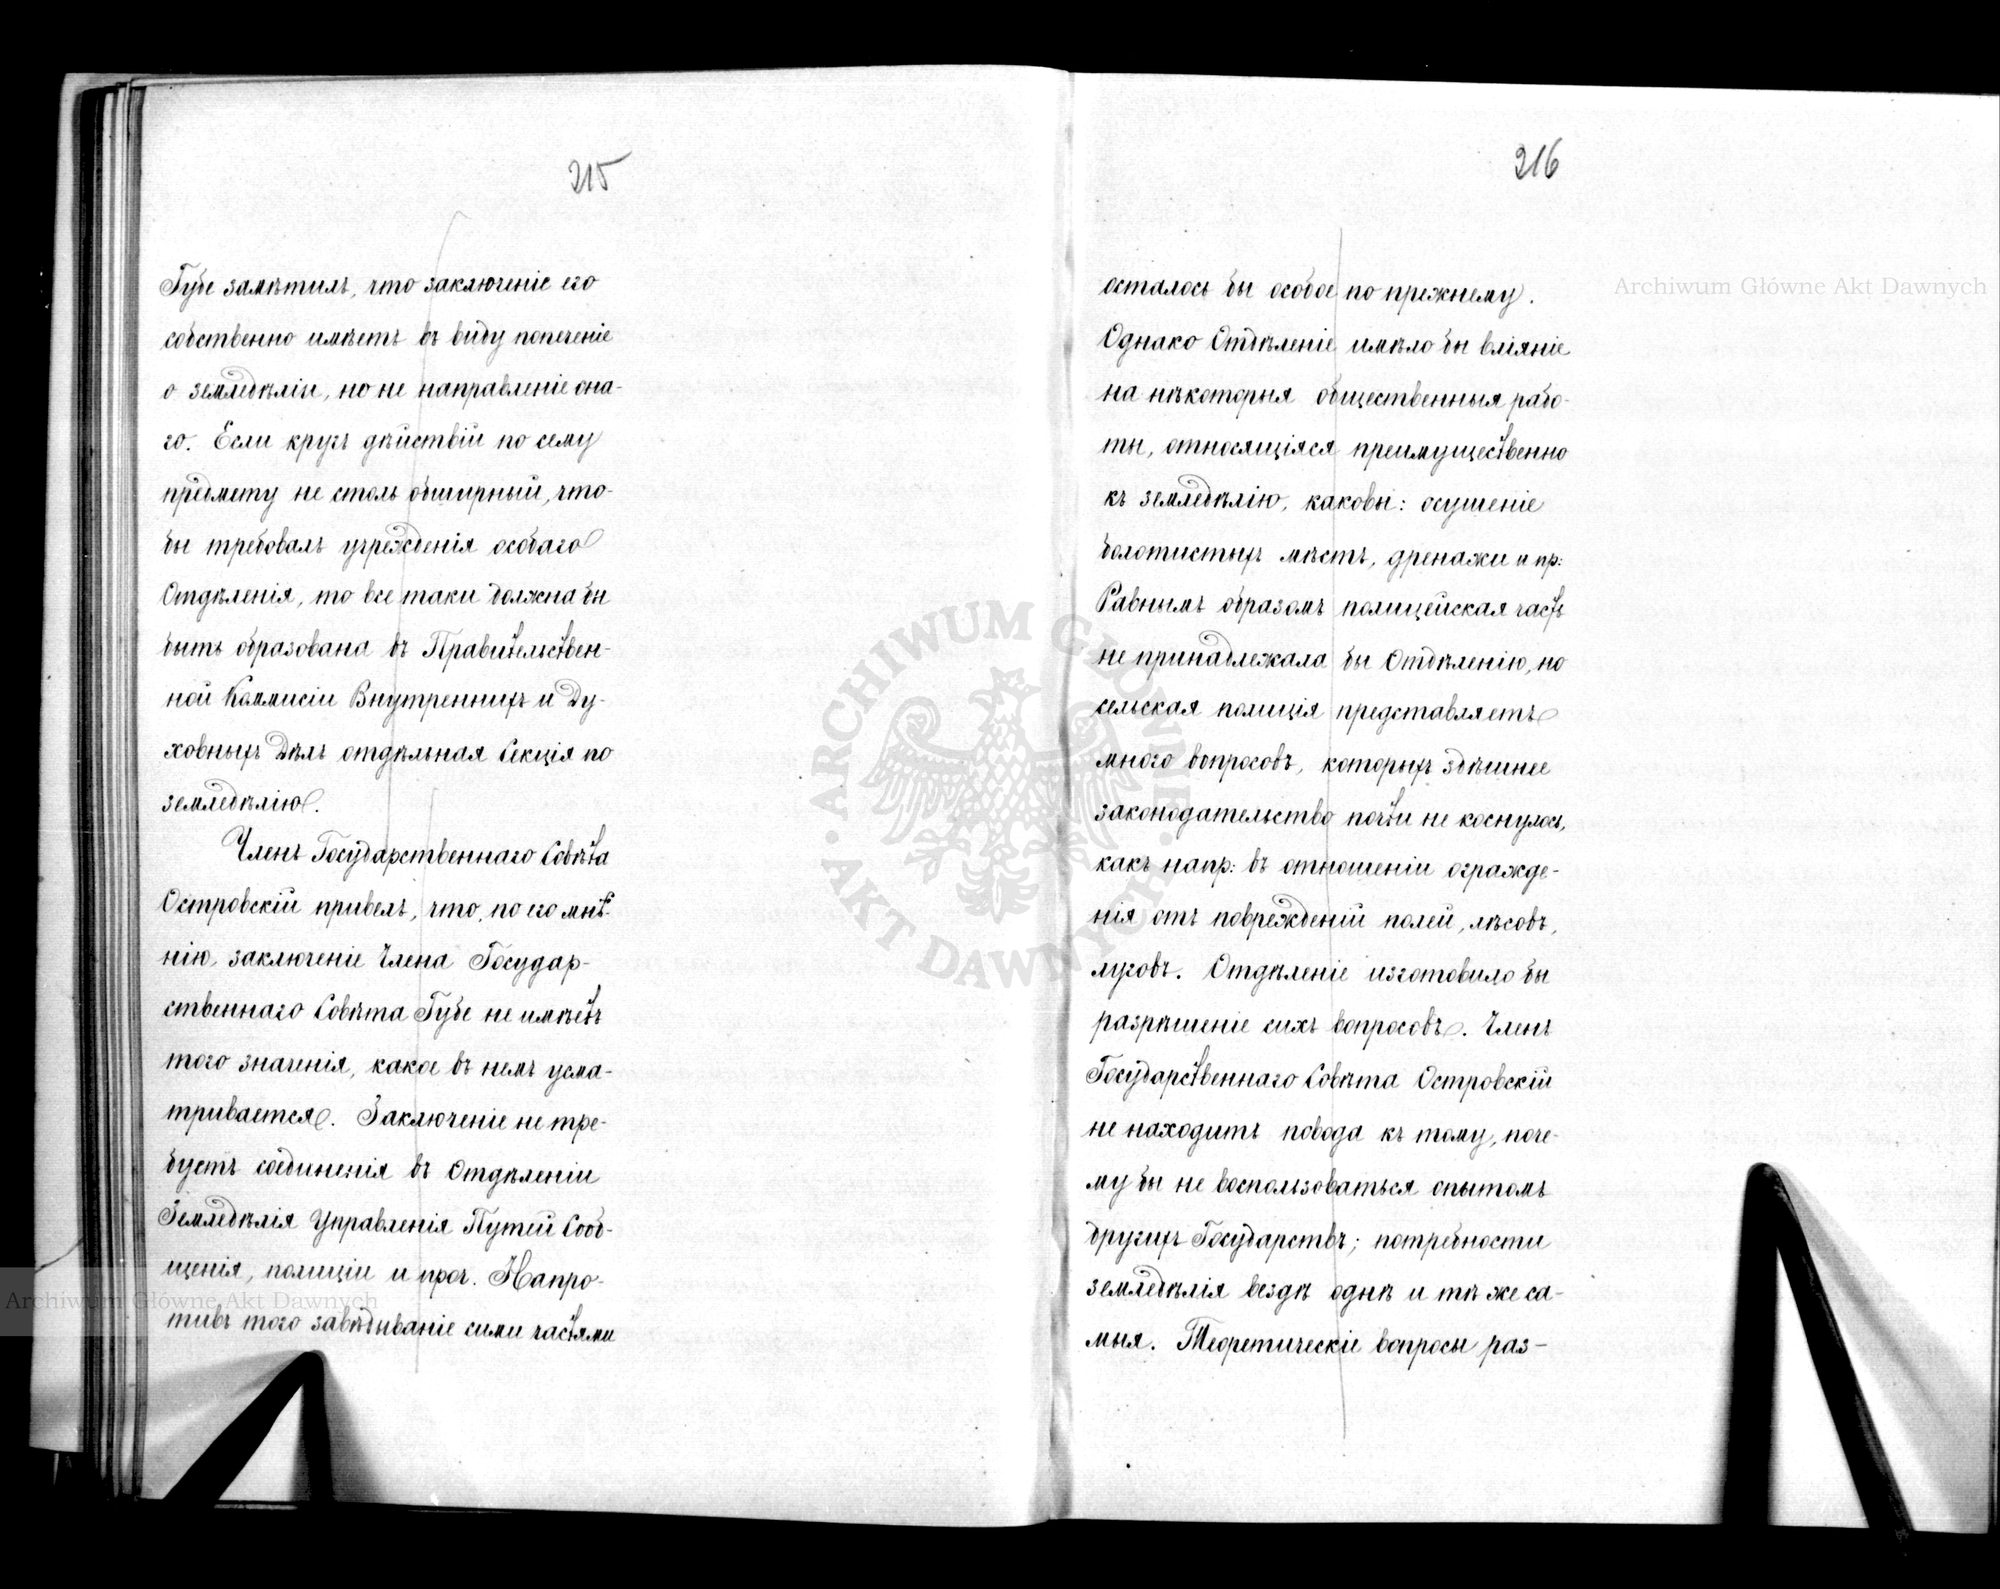 215
Губе замѣтилъ, что заключеніе его
собственно имѣетъ въ виду попеченіе
о земледѣліи, но не направленіе она-
го. Если кругъ дѣйствій по сему
предмету не столь обширный, что-
бы требовалъ учрежденія особаго
Отдѣленія, то все таки должна бы
быть образована въ Правительствен-
ной Коммисіи Внутреннихъ и Ду-
ховныхъ Дѣлъ отдѣльная Секція по
земледѣлію.
Членъ Государственнаго Совѣта
Островскій привелъ, что, по его мнѣ-
нію, заключеніе Члена Государ-
ственнаго Совѣта Губе не имѣетъ
того значенія, какое въ немъ усма-
тривается. Заключеніе не тре-
буетъ соединенія въ Отдѣленіи
Земледѣлія Управленія Путей Сооб-
щенія, полиціи и проч. Напро-
тивъ того завѣдываніе сими частями
216
осталось бы особое по прежнему.
Однако Отдѣленіе имѣло бы вліяніе
на нѣкоторыя общественныя рабо-
ты, относящіяся преимущественно
къ земледѣлію, каковы: осушеніе
болотистыхъ мѣстъ, дренажи и пр:
Равнымъ образомъ полицейская часть
не принадлежала бы Отдѣленію, но
сельская полиція представляетъ
много вопросовъ, которыхъ здѣшнее
законодательство почти не коснулось,
какъ напр: въ отношеніи огражде-
нія отъ поврежденій полей, лѣсовъ,
луговъ. Отдѣленіе изготовило бы
разрѣшеніе сихъ вопросовъ. Членъ
Государственнаго Совѣта Островскій
не находитъ повода къ тому, поче-
му бы не воспользоваться опытомъ
другихъ Государствъ; потребности
земледѣлія вездѣ однѣ и тѣ же са-
мыя. Теоретическіе вопросы раз-
Archiwum Główne Akt Dawnych
Archiwum Główne Akt Dawnych
ARCHIWUM GŁÓWNE AKT DAWNYCH